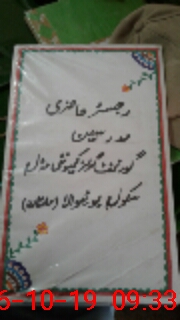 رجسٹر حاضری
مدرسین
گورنمنٹ گرلز کمیونٹی ماڈل
سکول بونیوالا (ملتان)
6-10-19 09:33